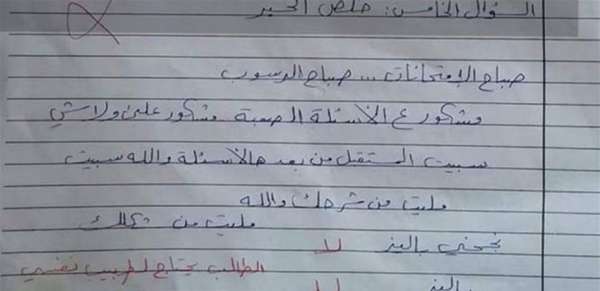 السؤال الخامس: خلص الحبر
صباح الإمتحانات... صباح الرسوب
مشكور ع الأسئلة الصعبة مشكور على ولاشي
سبيت المستقبل من بعد هالأسئلة والله سبيت
مليت من شرحك والله
مليت من شكلك
نجحني باليز لا
الطالب يحتاج لطبيب نفسي
باليز لا